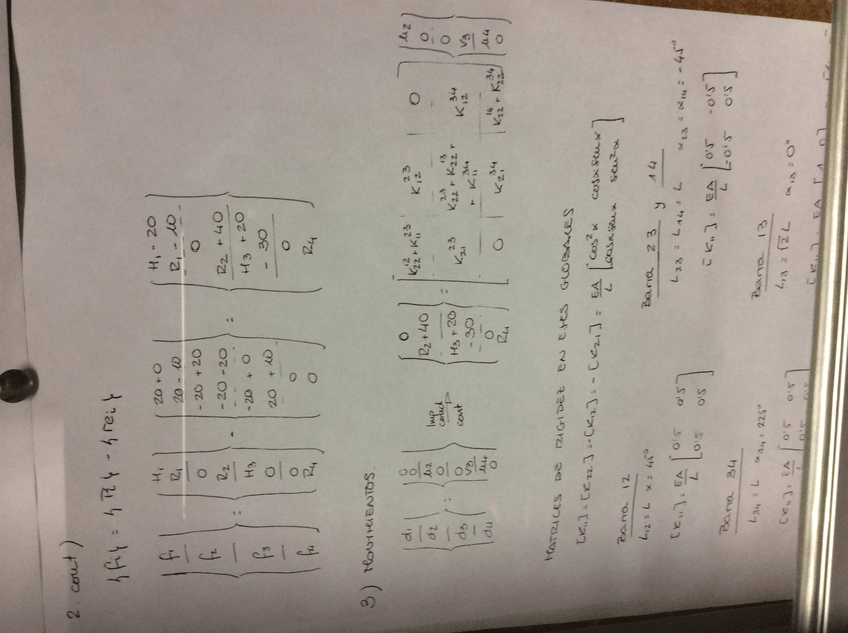 2. cont)
{fi} = {πi} - {rei}
{f1 f2 f3 f4} = {H1 R1 0 R2 H3 0 0 R4} - {20+0 20-10 -20+20 -20-20 -20+0 20+10 0 0} = {H1-20 R1-10 0 R2+40 H3+20 -30 0 R4}
3) MOVIMIENTOS.
{d1 d2 d3 d4} = {0 0 u2 0 0 v3 u4 0} {0 R2+40 H3+20 -30 0 R4} = [K22^12+K11^23 K12^23 0 K21^23 K22^23+K22^13+K11^34 K12^34 0 K21^34 K22^14+K22^34] {u2 0 0 v3 u4 0}
MATRICES DE RIGIDEZ EN EJES GLOBALES
[K11] = [K22] = -[K12] = -[K21] = EA/L [cos²α cosα senα cosα senα sen²α]
Barra 12
L12 = L α = 45º
[K11] = EA/L [0'5 0'5 0'5 0'5]
Barra 23 y 14
L23 = L14 = L α23 = α14 = -45º
[K11] = EA/L [0'5 -0'5 -0'5 0'5]
Barra 34
L34 = L α34 = 225º
[K11] = EA/L [0'5 0'5 0'5 0'5]
Barra 13
L13 = √2 L α13 = 0º
[K11] = EA [1 0]